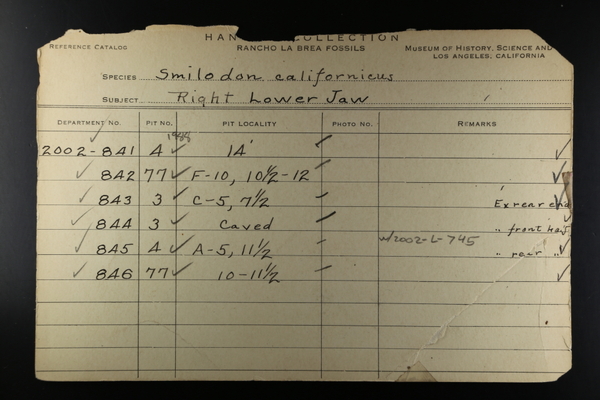 HAN COLLECTION
REFERENCE CATALOG RANCHO LA BREA FOSSILS MUSEUM OF HISTORY, SCIENCE AND
LOS ANGELES, CALIFORNIA
SPECIES Smilodon californicus
SUBJECT Right Lower Jaw
DEPARTMENT NO. PIT NO. PIT LOCALITY PHOTO NO. REMARKS
2002-841 4 14'
842 77 F-10, 10½-12
843 3 C-5, 7½ Ex rear end
844 3 Caved " front
w/2002-L-745
845 4 A-5, 11½ " rear "
846 77 10-11½